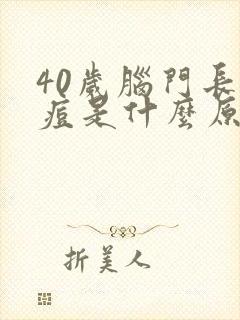 40歲腦門長
痘是什麼原
折美人